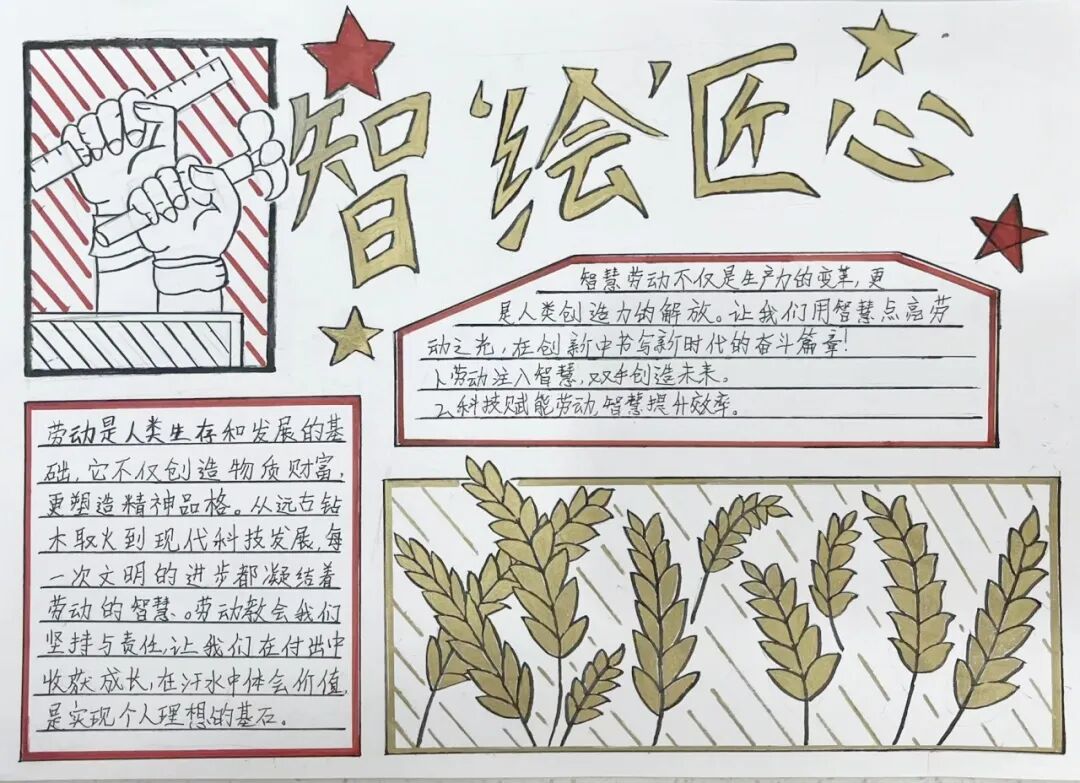 智‘绘’匠心
智慧劳动不仅是生产力的变革，更
是人类创造力的解放。让我们用智慧点亮劳
动之光，在创新中书写新时代的奋斗篇章！
1、劳动注入智慧，双手创造未来。
2、科技赋能劳动，智慧提升效率。
劳动是人类生存和发展的基
础，它不仅创造物质财富，
更塑造精神品格。从远古钻
木取火到现代科技发展，每
一次文明的进步都凝结着
劳动的智慧、。劳动教会我们
坚持与责任，让我们在付出中
收获成长，在汗水中体会价值，
是实现个人理想的基石。